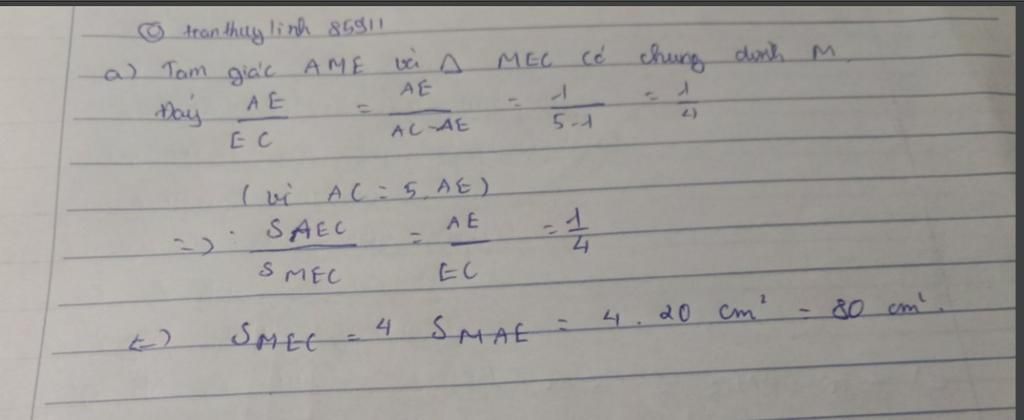 © tranthuylinh 85911
a) Tam giác AME và Δ MEC có chung đỉnh M
Đáy AE/EC = AE/AC-AE = 1/5-1 = 1/4
(vì AC = 5.AE)
=> SAEC/SMEC = AE/EC = 1/4
<=> SMEC = 4 SMAE = 4 . 20 cm² = 80 cm².